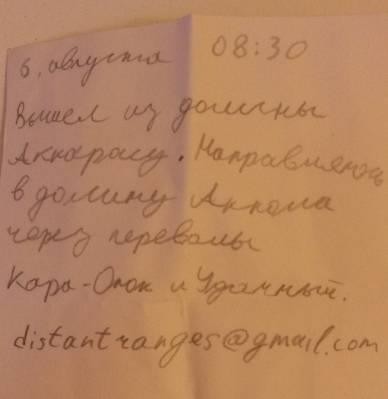 6. августа 08:30
Вышел из долины
Аккарасу. Направляюсь
в долину Аккола
через перевалы
Кара-Опок и Удачный.
distantranges@gmail.com